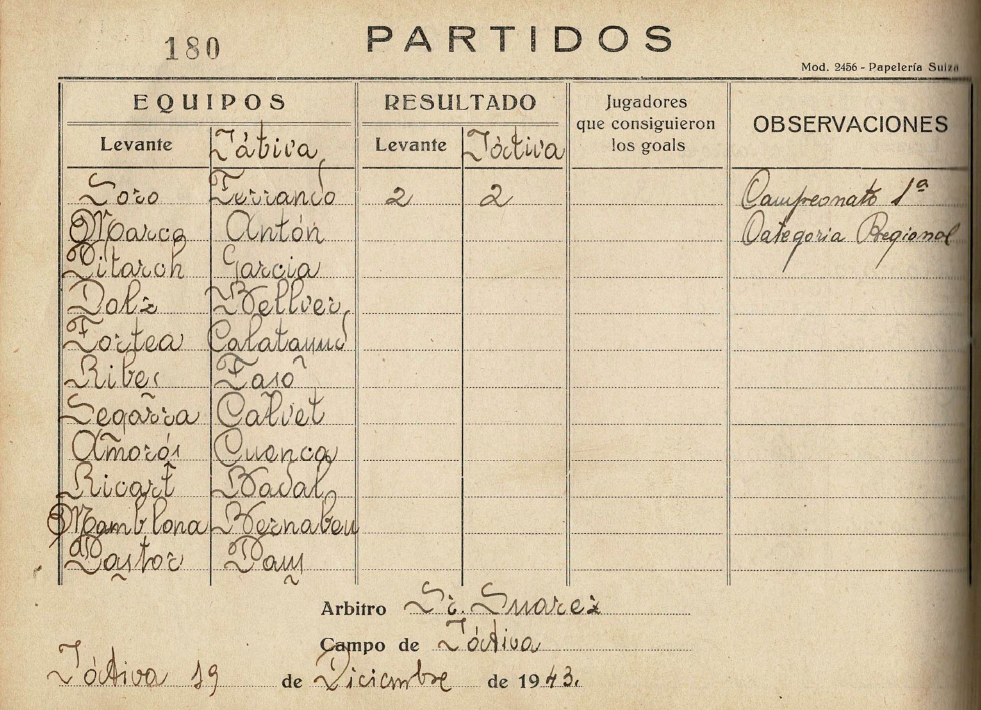 180 PARTIDOS
Mod. 2456 - Papelería Suiza
EQUIPOS RESULTADO Jugadores que consiguieron los goals OBSERVACIONES
Levante Játiva Levante Játiva
Soro Ferrando 2 2 Campeonato 1ª
Marco Antón Categoria Regional
Pitarch Garcia
Dolz Bellver
Fortea Calatayud
Ribes Fasó
Segarra Calvet
Amorós Cuenca
Ricart Badal
Mamblona Bernabeu
Pastor Paus
Arbitro Sr. Suarez
Campo de Játiva
Játiva 19 de Diciembre de 1943.